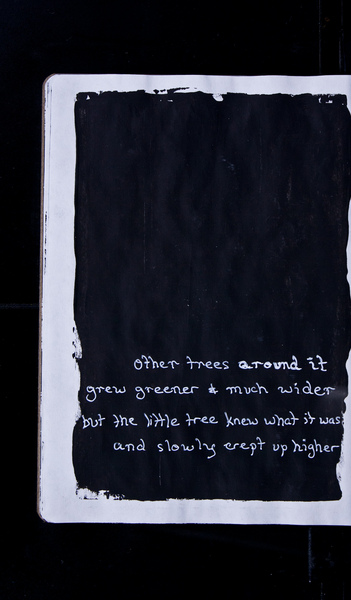 other trees around it
grew greener & much wider
but the little tree knew what it was
and slowly crept up higher